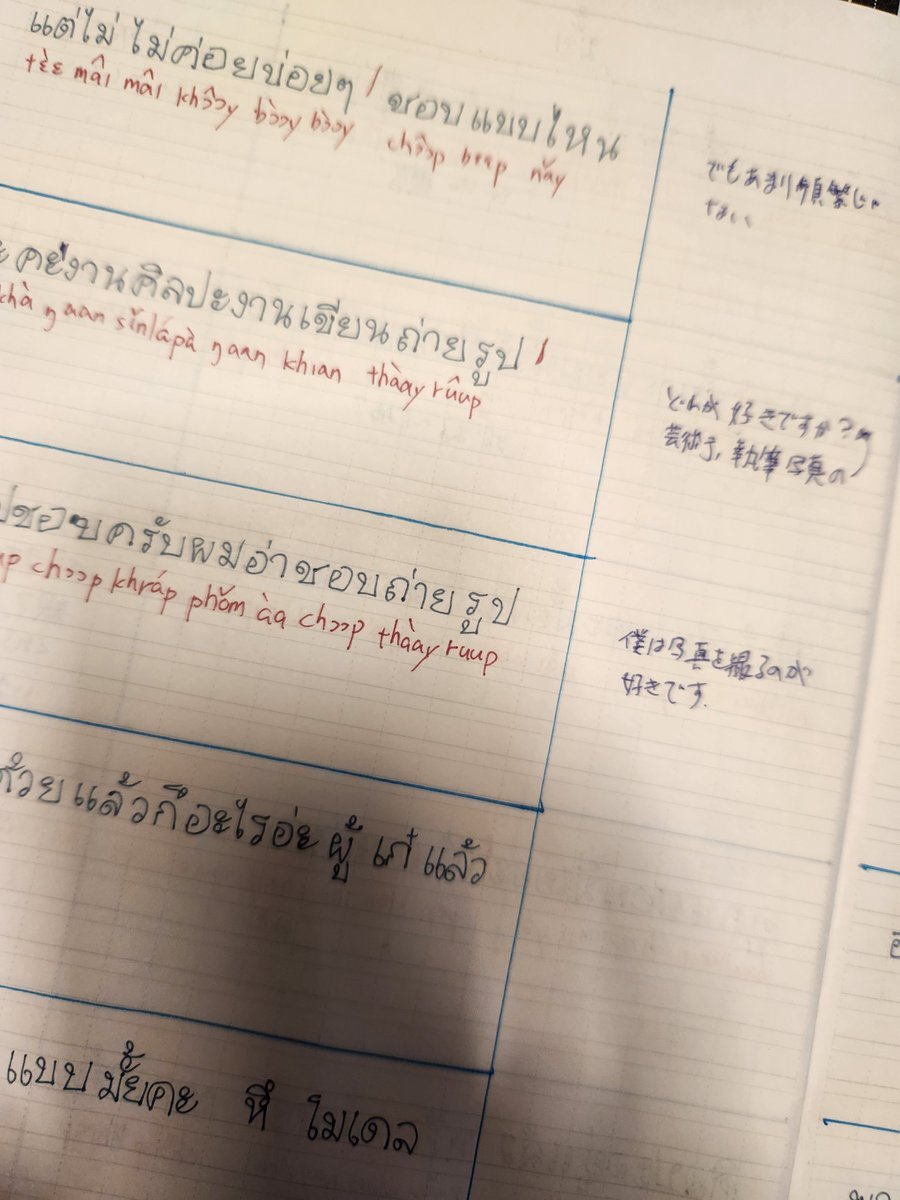 แต่ไม่ ไม่ค่อยบ่อยๆ / ชอบแบบไหน
tɛ̀ɛ mâi mâi khɔ̂ɔy bɔ̀ɔy bɔ̀ɔy chɔ̂ɔp bɛɛp nǎy
でもあまり頻繁じゃ
ない
งานศิลปะงานเขียนถ่ายรูป /
khà ŋaan sǐnlápà ŋaan khian thàay rûup
どれが好きですか?
芸術 執筆 写真の
ชอบครับผมอ่าชอบถ่ายรูป
chɔɔp khráp phǒm àa chɔɔp thàay ruup
僕は写真を撮るのが
好きです.
ด้วยแล้วก็อะไรอ่ะ ผู้ เก๋ แล้ว
แบบมั้ยคะ หึ โมเดล